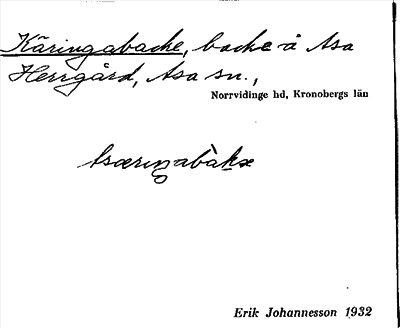 Käringabacke, backe å Asa
Herrgård, Asa sn.,
Norrvidinge hd, Kronobergs län
Erik Johannesson 1932